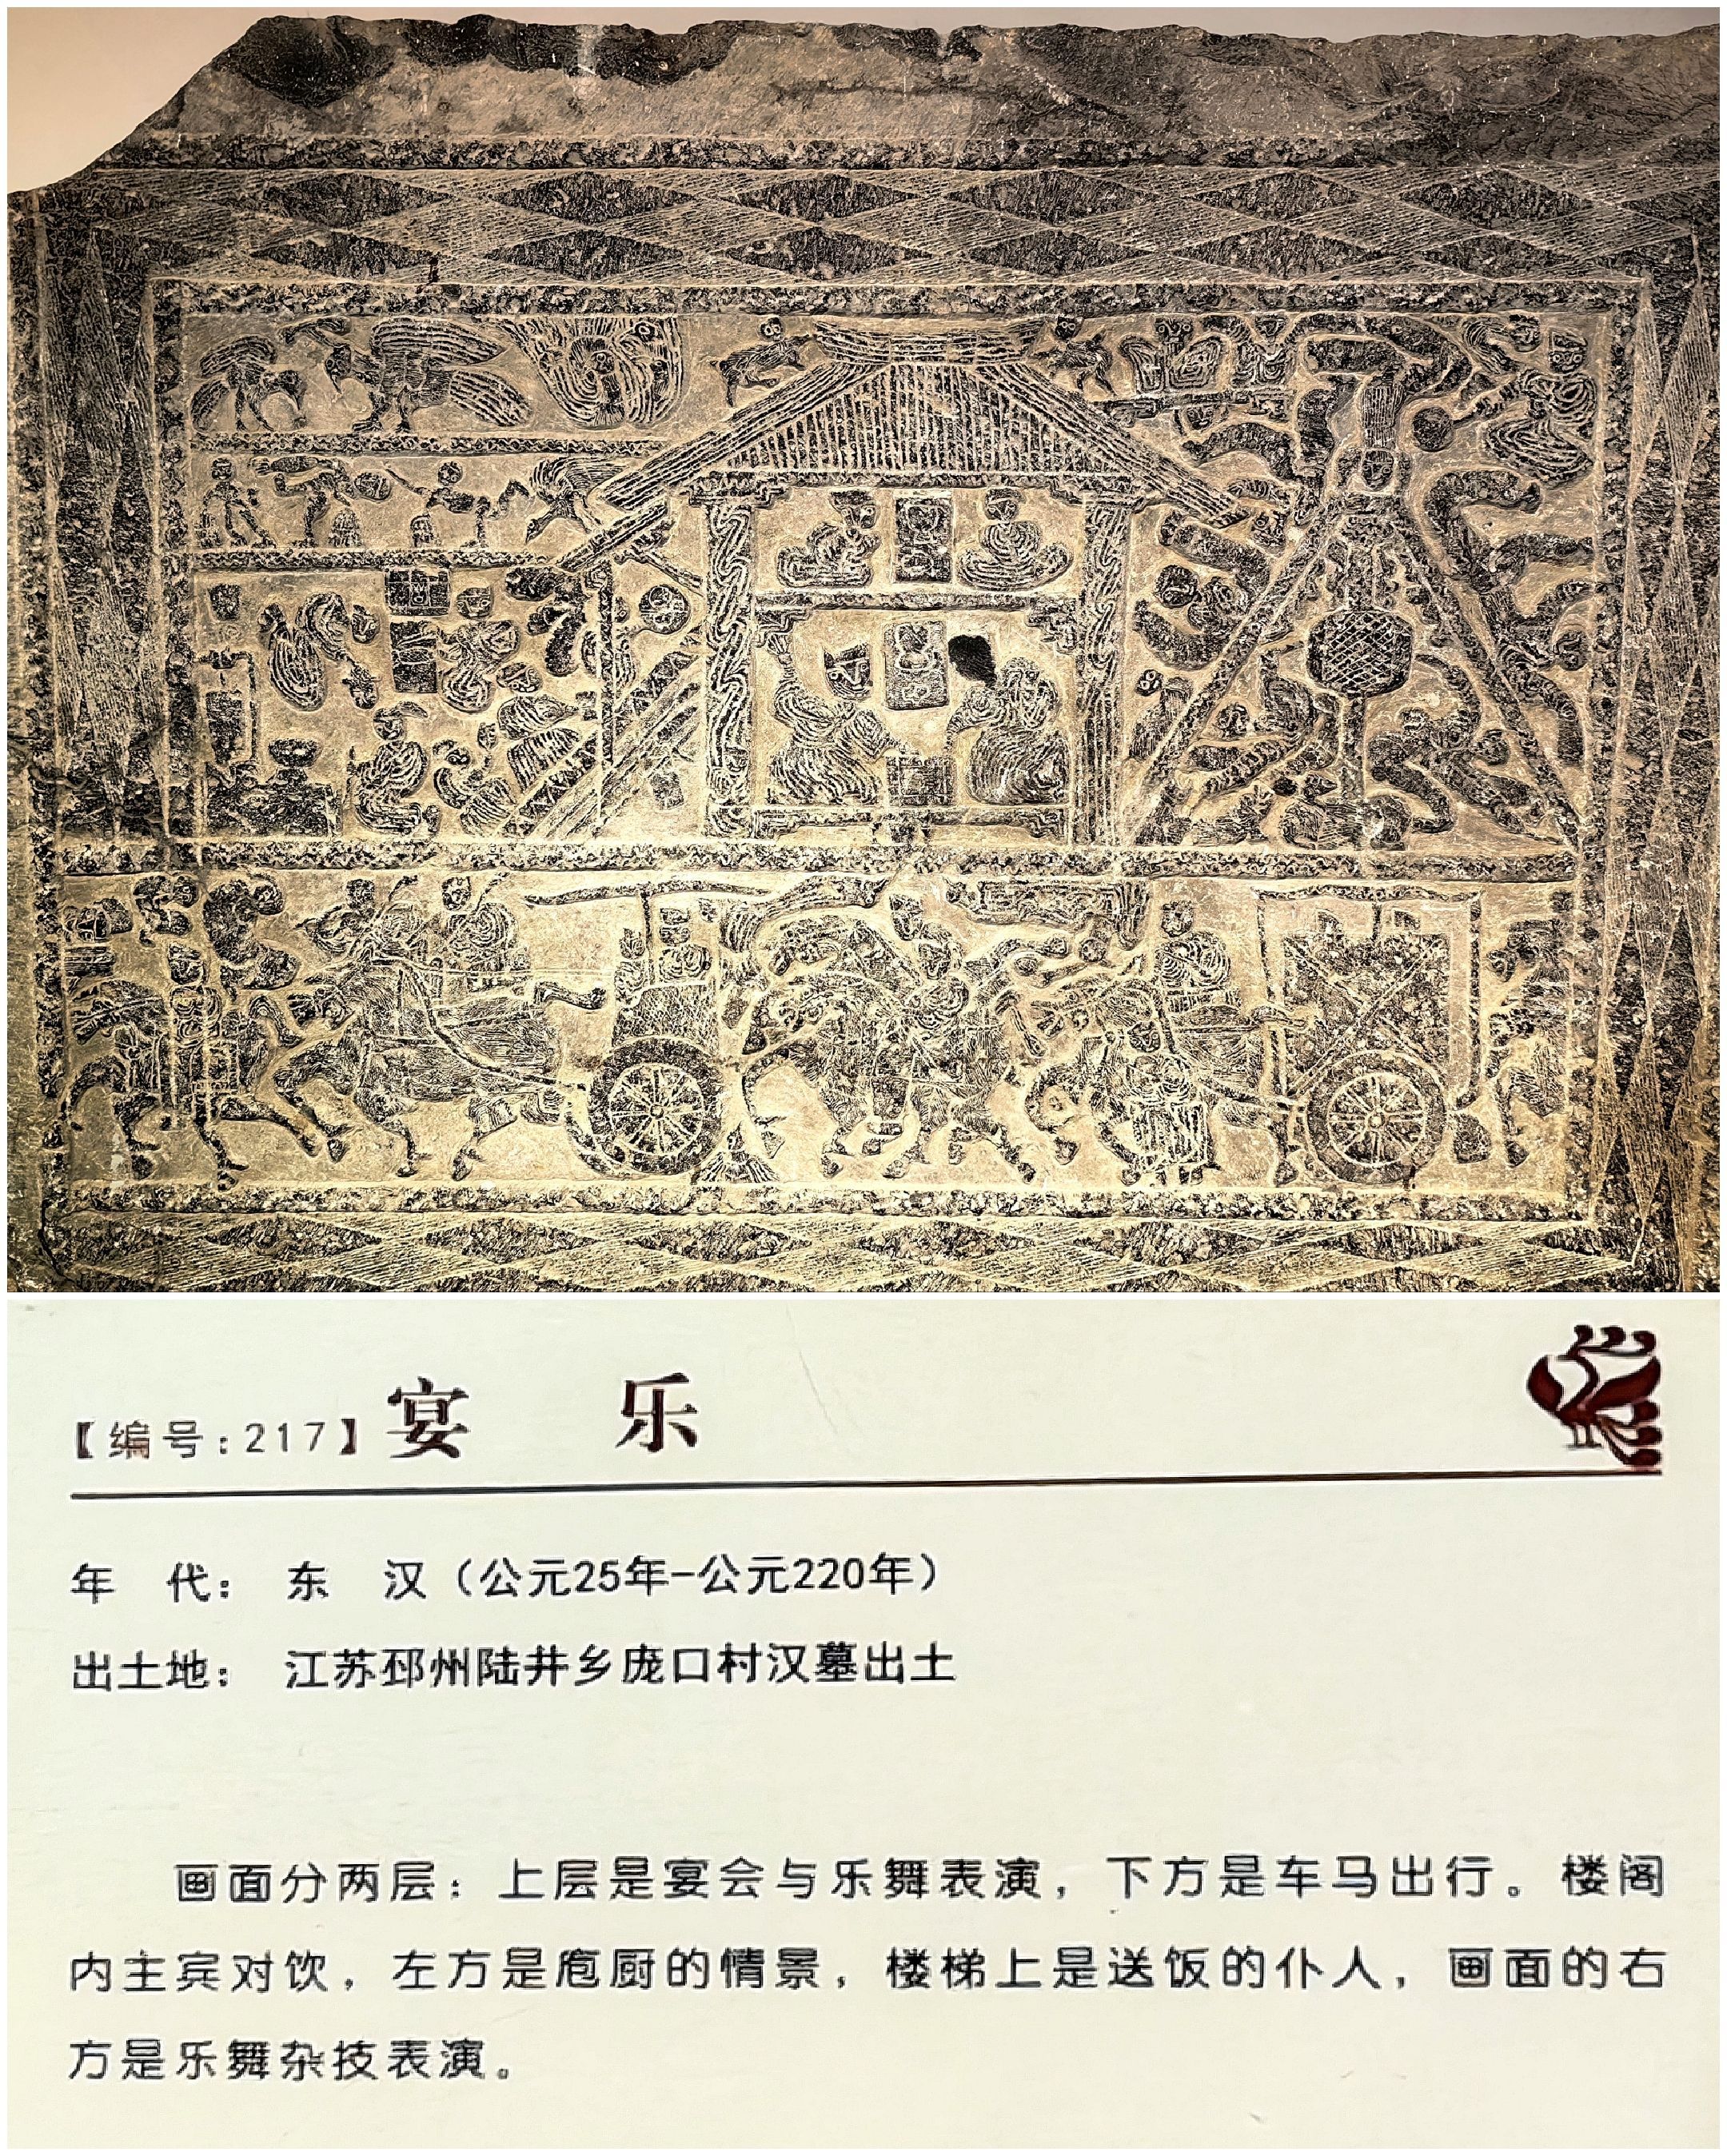 【编号:217】宴 乐
年 代： 东 汉（公元25年-公元220年）
出土地： 江苏邳州陆井乡庞口村汉墓出土
画面分两层：上层是宴会与乐舞表演，下方是车马出行。楼阁
内主宾对饮，左方是庖厨的情景，楼梯上是送饭的仆人，画面的右
方是乐舞杂技表演。